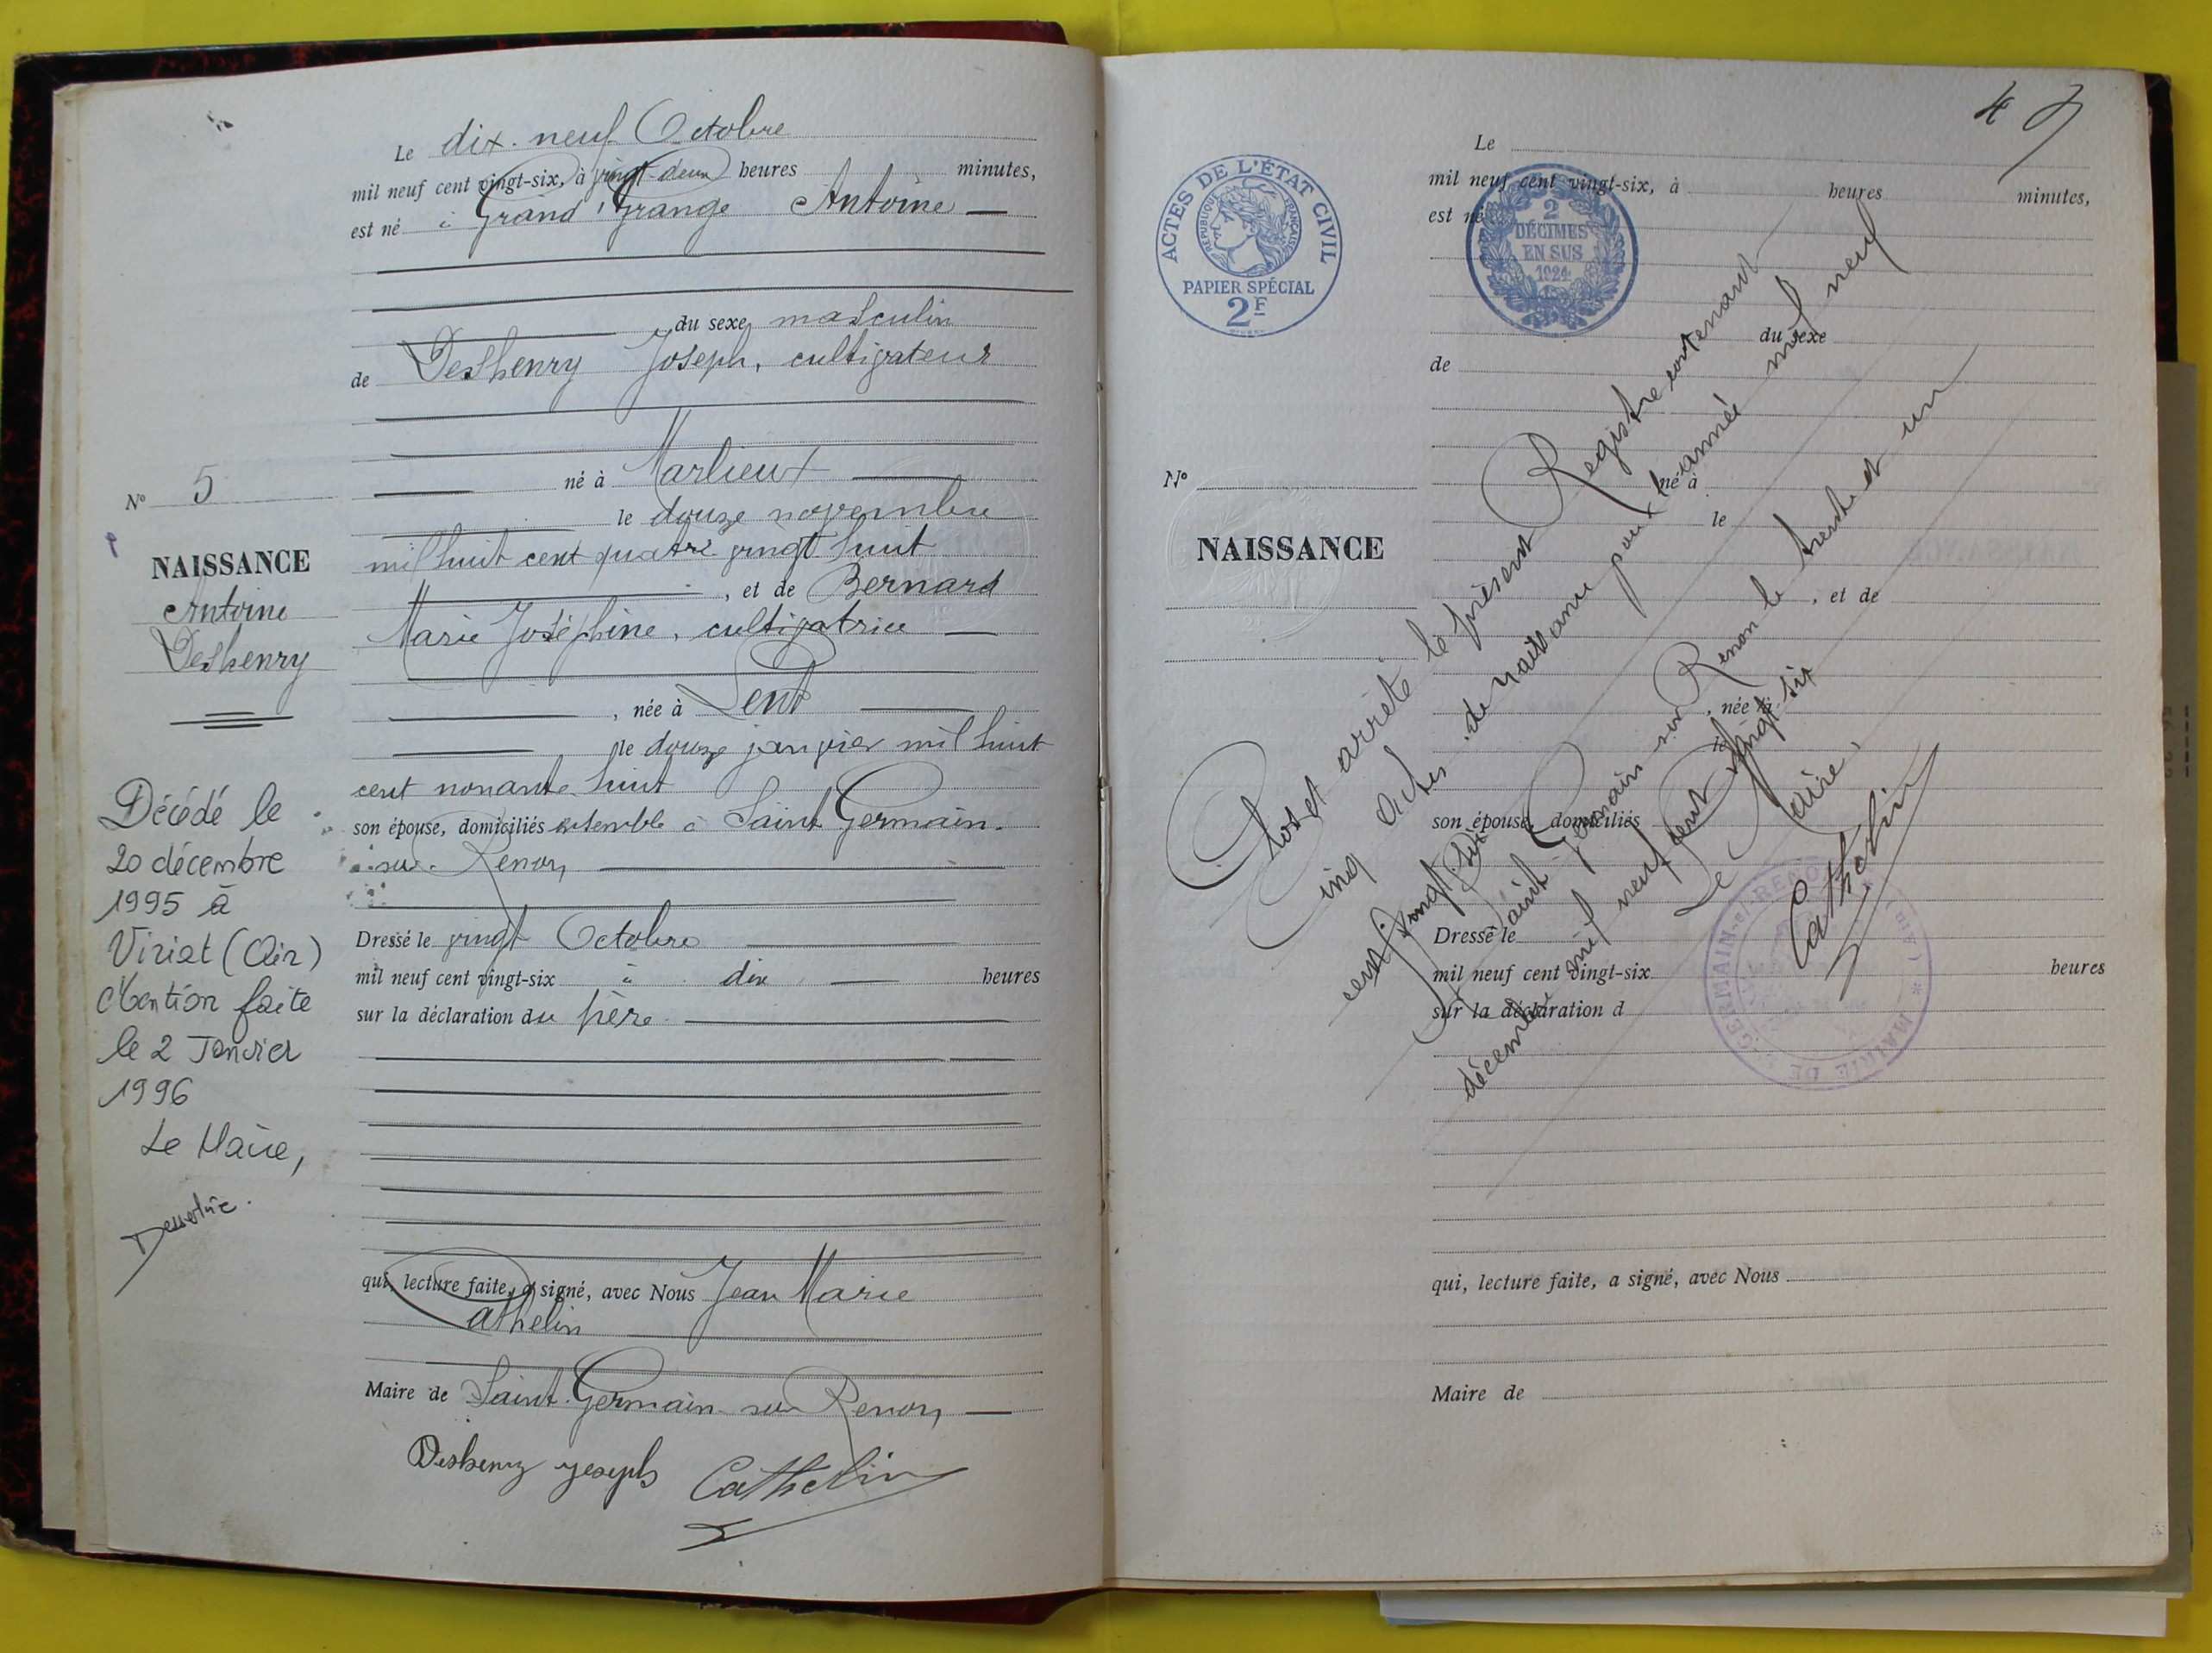 Le dix-neuf Octobre
mil neuf cent vingt-six, à vingt-deux heures minutes,
est né à Grand'Grange Antoine
du sexe masculin
de Deshenry Joseph, cultivateur
né à Marlieux
le douze novembre
mil huit cent quatre vingt huit
, et de Bernard
Marie Joséphine, cultivatrice
, née à Lent
le douze janvier mil huit
cent nonante huit
son épouse, domiciliés ensemble à Saint Germain-
sur-Renon
Dressé le vingt Octobre
mil neuf cent vingt-six à dix heures
sur la déclaration du père
qui, lecture faite, a signé, avec Nous Jean Marie
Cathelin
Maire de Saint-Germain-sur-Renon
Deshenry joseph Cathelin
N° 5
NAISSANCE
Antoine
Deshenry
Décédé le
20 décembre
1995 à
Viriat (Ain)
Mention faite
le 2 Janvier
1996
Le Maire,
4
ACTES DE L'ÉTAT CIVIL
RÉPUBLIQUE FRANÇAISE
PAPIER SPÉCIAL
2F
2
DÉCIMES
EN SUS
1924
Le
mil neuf cent vingt-six, à heures minutes,
est né
du sexe
de
né à
le
, et de
, née à
le
son épouse, domiciliés
Dressé le
mil neuf cent vingt-six heures
sur la déclaration d
qui, lecture faite, a signé, avec Nous
Maire de
N°
NAISSANCE
Clos et arrêté le présent Registre contenant
Cinq actes de naissance pour l'année mil neuf
cent vingt six
Saint Germain sur Renon le trente et un
décembre mil neuf cent vingt-six
Le Maire,
Cathelin
MAIRIE DE St GERMAIN-s-RENON (Ain)